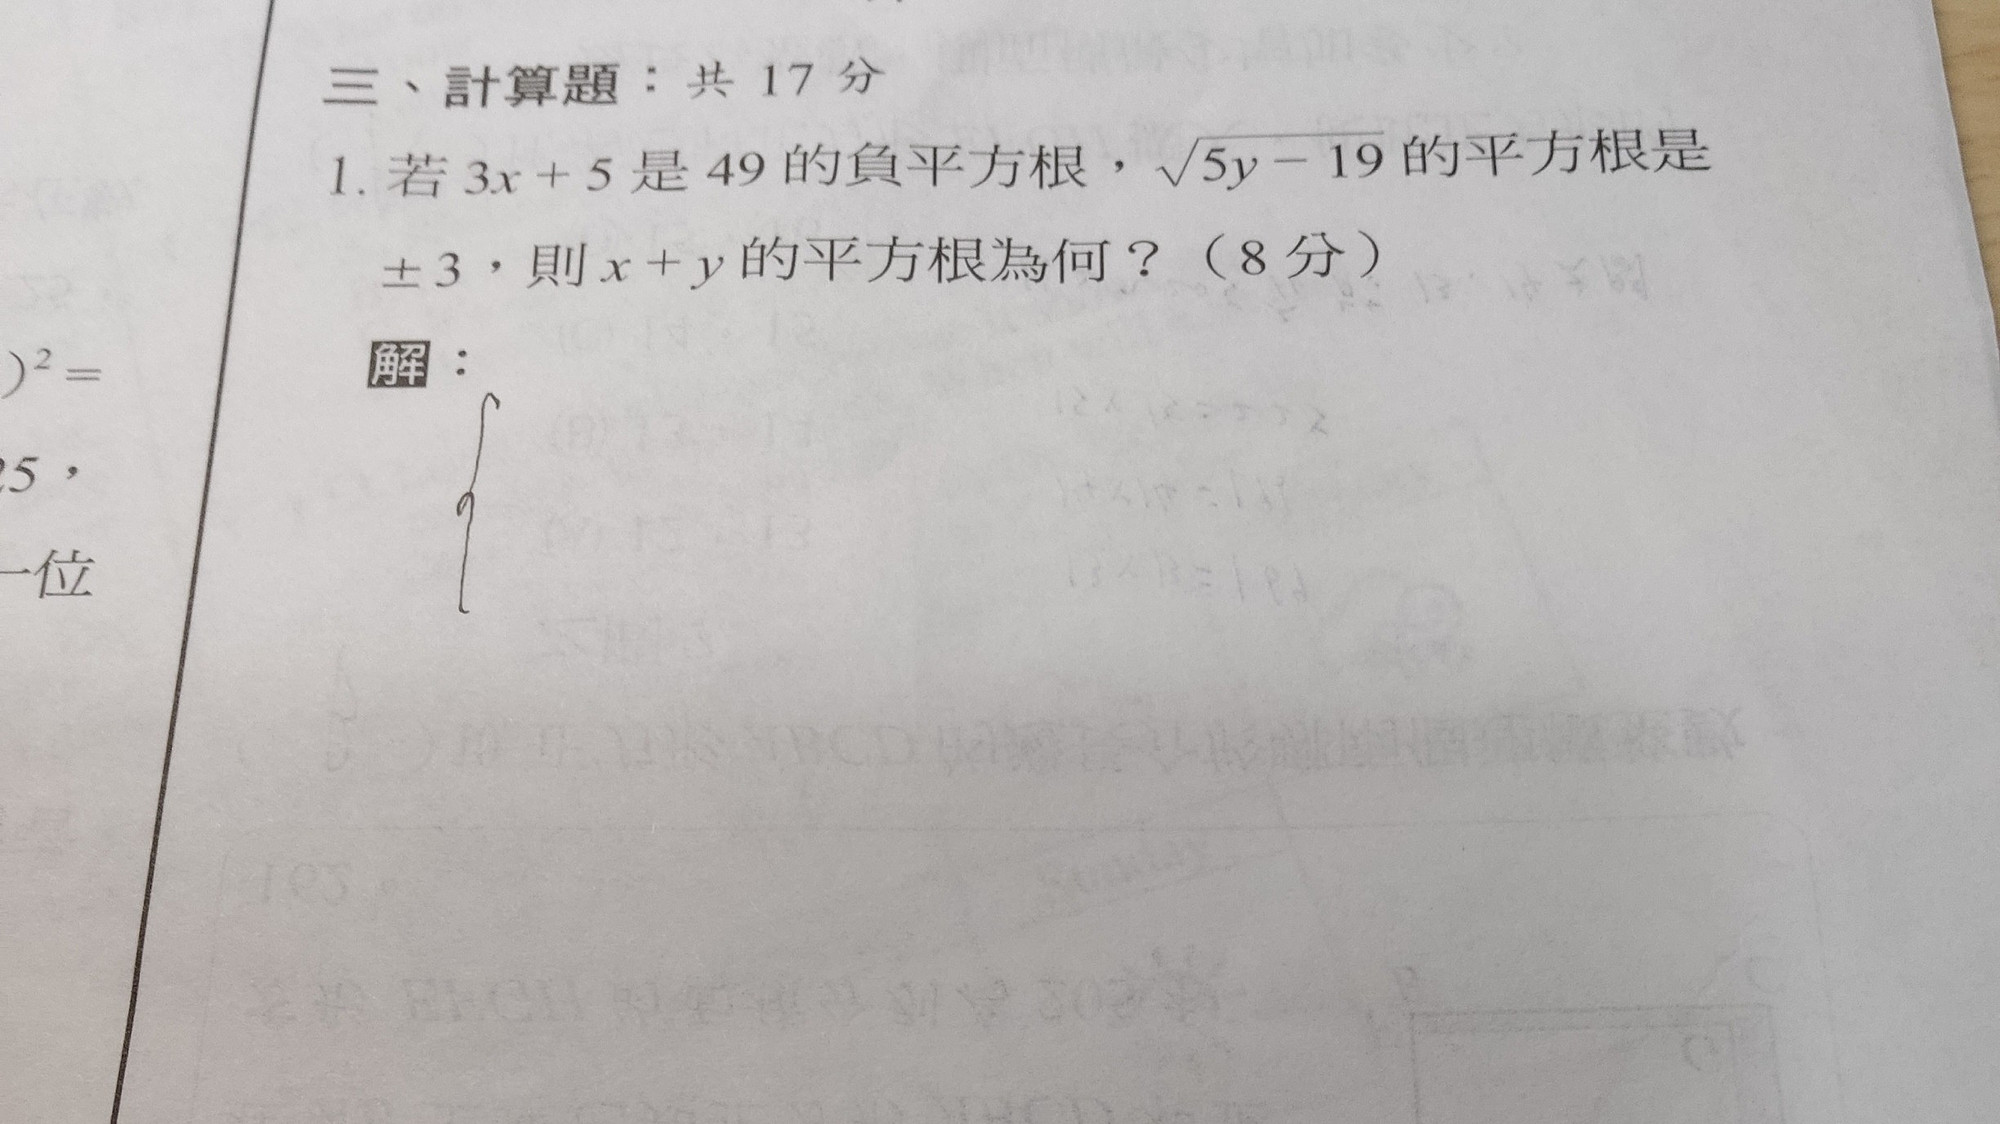 三、計算題：共 17 分
1. 若 3x + 5 是 49 的負平方根，√5y − 19 的平方根是
± 3，則 x + y 的平方根為何？（8 分）
解：
)² =
25，
一位